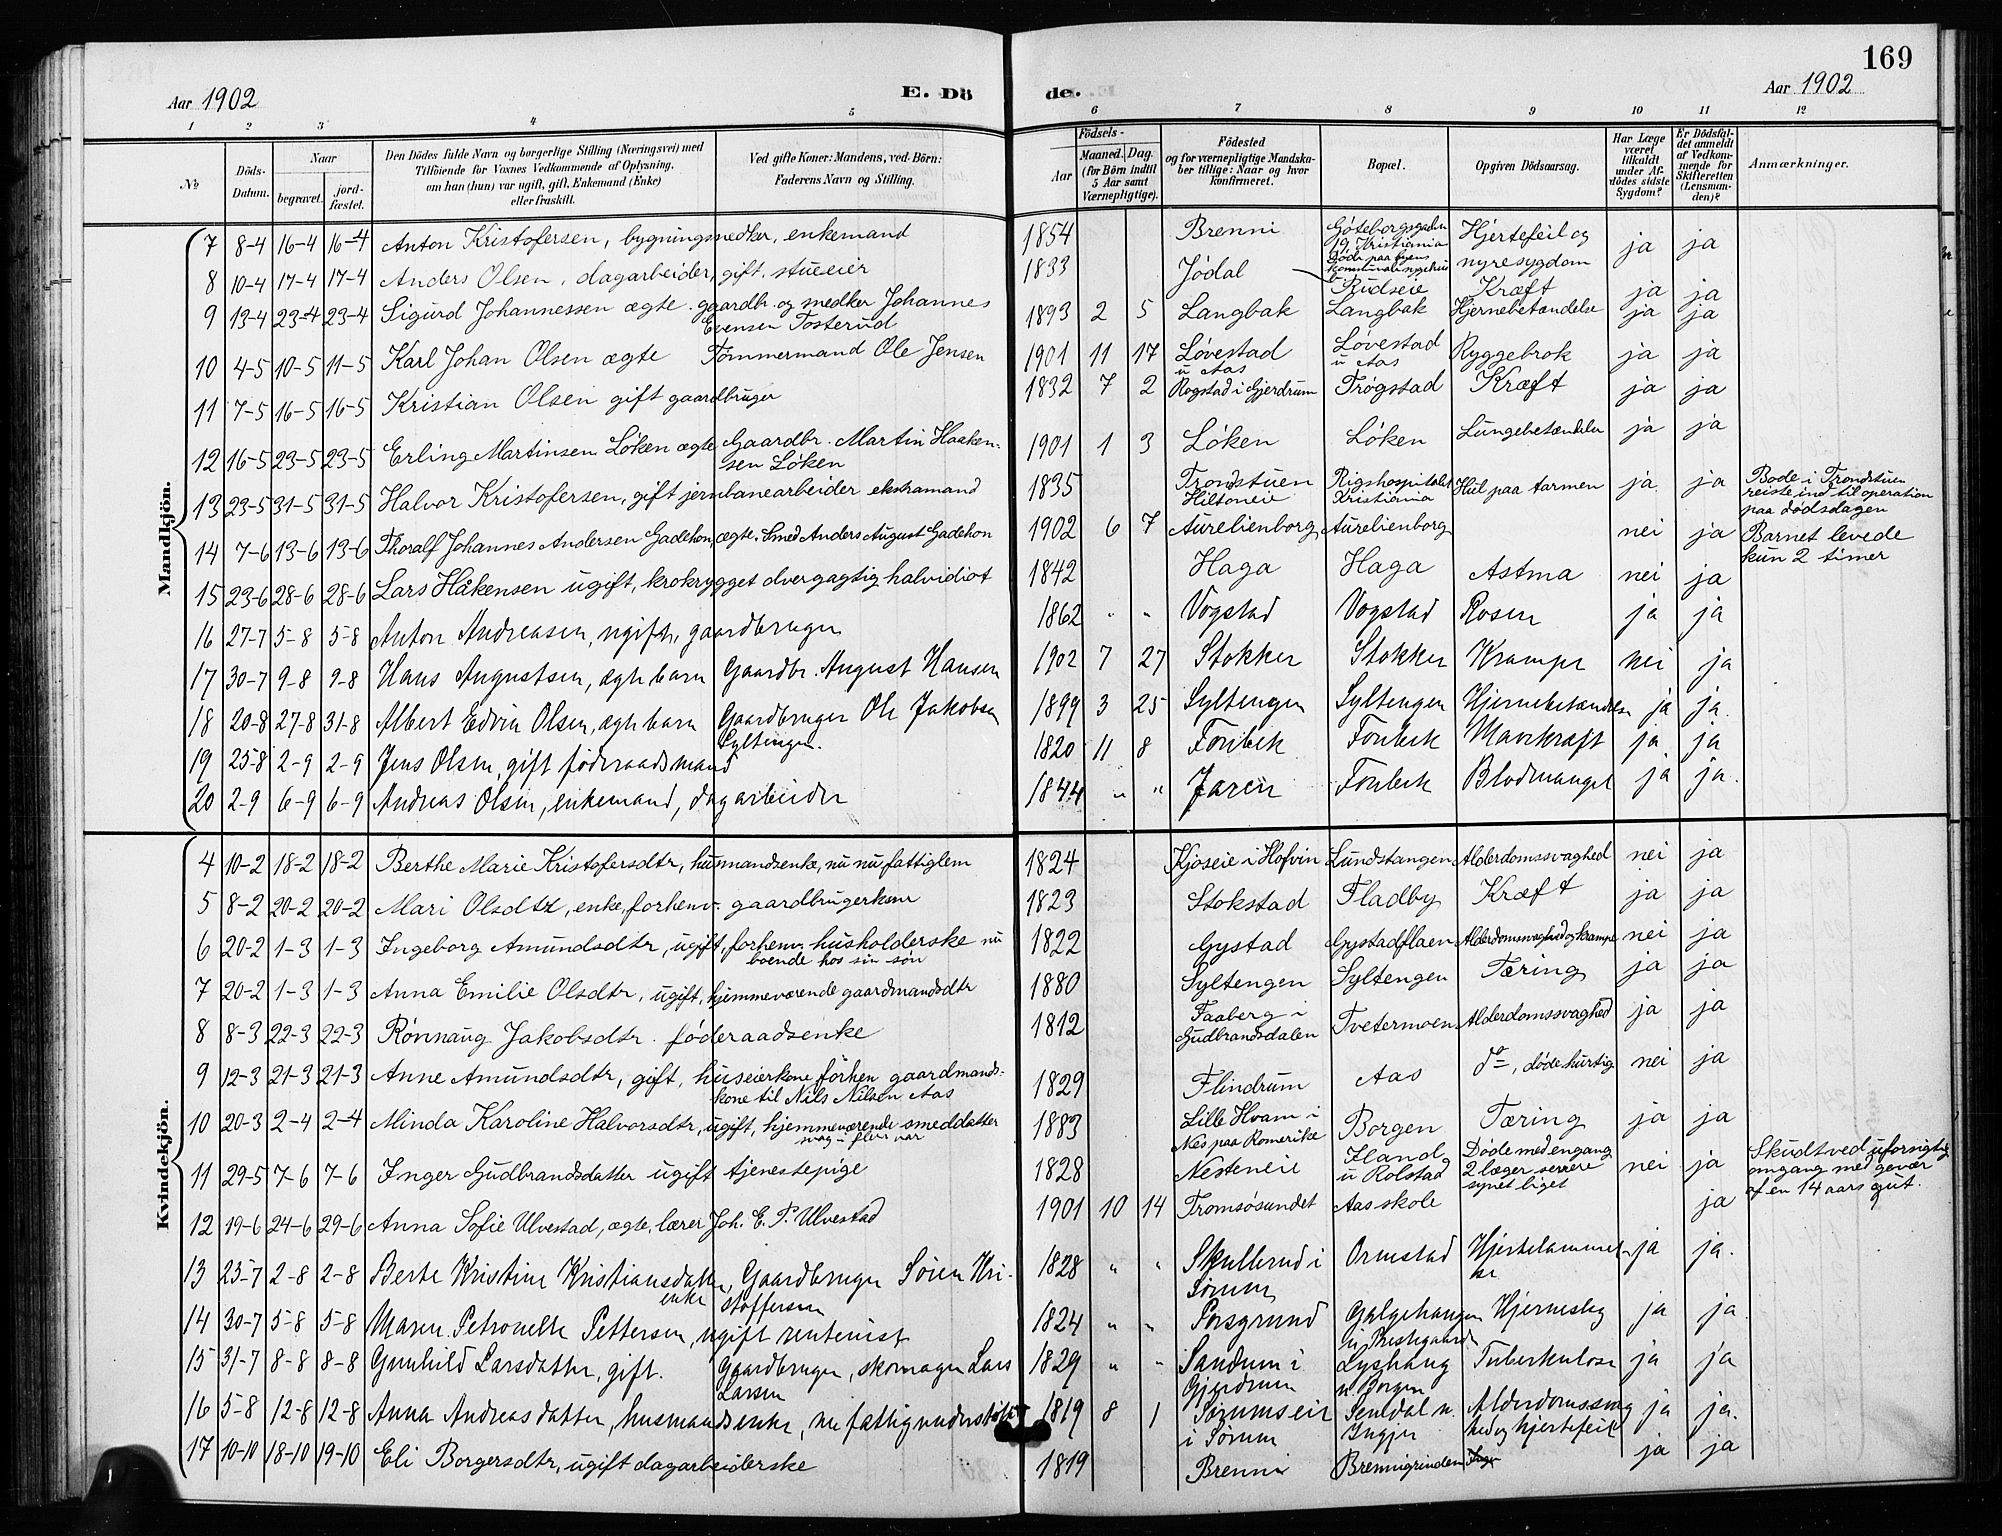 169
Aar 1902
E. Dö de.
Aar 1902
1 2 3 4 5 6 7 8 9 10 11 12
No
Döds-Datum.
Naar
begravet.
jord-fæstet.
Den Dödes fulde Navn og borgerlige Stilling (Næringsvei) med
Tilföiende for Voxnes Vedkommende af Oplysning,
om han (hun) var ugift, gift, Enkemand (Enke)
eller fraskilt.
Ved gifte Koner: Mandens, ved Börn:
Faderens Navn og Stilling.
Födsels-
Aar
Maaned. Dag.
(for Börn indtil
5 Aar samt
Værnepligtige).
Födested
og for værnepligtige Mandska-
ber tillige: Naar og hvor
konfirmeret.
Bopæl.
Opgiven Dödsaarsag.
Har Læge
været
tilkaldt
under Af-
dödes sidste
Sygdom?
Er Dödsfal-
det anmeldt
af Vedkom-
mende for
Skifteretten
(Lensman-
den)?
Anmærkninger.
Mandkjön.
7 8-4 16-4 16-4 Anton Kristofersen, bygningssnedker, enkemand 1854 Brenni Göteborgsgaden 19, Kristiania Døde paa byens kommunale sygehus Hjertefeil og nyresygdom ja ja
8 10-4 17-4 17-4 Anders Olsen, dagarbeider, gift, stueeier 1833 Jødal Rudseie Kræft ja ja
9 13-4 23-4 23-4 Sigurd Johannessen ægte gaardbr. og snedker Johannes Evensen Tosterud 1893 2 5 Langbak Langbak Hjernebetændelse ja ja
10 4-5 10-5 11-5 Karl Johan Olsen ægte Tømmermand Ole Jensen 1901 11 17 Løvestad u Aas Løvestad u Aas Ryggebrok ja ja
11 7-5 16-5 16-5 Kristian Olsen gift gaardbruger 1832 7 2 Rogstad i Gjerdrum Trøgstad Kræft ja ja
12 16-5 23-5 23-5 Erling Martinsen Løken ægte Gaardbr. Martin Haaken-sen Løken 1901 1 3 Løken Løken Lungebetændelse ja ja
13 23-5 31-5 31-5 Halvor Kristofersen, gift jernbanearbeider ekstramand 1835 Trondstuen Hiltoneie Rigshospitalet Kristiania Hul paa tarmen ja ja Bode i Trondstuen reiste ind til operation paa dødsdagen
14 7-6 13-6 13-6 Thoralf Johannes Andersen Gadehon, ægte, Smed Anders August Gadehon 1902 6 7 Aurelienborg Aurelienborg nei ja Barnet levede kun 2 timer
15 23-6 28-6 28-6 Lars Håkensen ugift, krokrygget dvergagtig halvidiot 1842 Haga Haga Astma nei ja
16 27-7 5-8 5-8 Anton Andreasen, ugift, gaardbruger 1862 " " Vogstad Vogstad Rosen ja ja
17 30-7 9-8 9-8 Hans Augustsen, ægte barn Gaardbr. August Hansen 1902 7 27 Stokker Stokker Krampe nei ja
18 20-8 27-8 31-8 Albert Edvin Olsen, ægte barn Gaardbruger Ole Jakobsen Syltengen. 1899 3 25 Syltengen Syltengen Hjernebetændelse ja ja.
19 25-8 2-9 2-9 Jens Olsen, gift føderaadsmand 1820 11 8 Fonbek Fonbek Mavekræft ja ja
20 2-9 6-9 6-9 Andreas Olsen, enkemand, dagarbeider 1844 " " Jaren Fonbek Blodmangel ja ja.
Kvindekjön.
4 10-2 18-2 18-2 Berthe Marie Kristofersdtr, husmandsenke, nu nu fattiglem 1824 Kjoseie i Hofvin Lundstangen Alderdomssvaghed nei ja
5 8-2 20-2 20-2 Mari Olsdtr, enke, forhenv. gaardbrugerkone 1823 Stokstad Fladby Kræft ja ja
6 20-2 1-3 1-3 Ingeborg Amundsdtr, ugift, forhenv. husholderske nu boende hos sin søn 1822 Gystad Gystadflaen Alderdomsvaghed og krampe nei ja
7 20-2 1-3 1-3 Anna Emilie Olsdtr, ugift, hjemmeværende gaardmandsdtr 1880 Syltengen Syltengen Tæring ja ja
8 8-3 22-3 22-3 Rønnaug Jakobsdtr. føderaadsenke 1812 Faaberg i Gudbrandsdalen Tvetermoen Alderdomssvaghed ja ja
9 12-3 21-3 21-3 Anne Amundsdtr, gift, huseierkone, forhen gaardmands-kone til Nils Nilsen Aas 1829 Flindrum Aas do, døde hurtig nei ja
10 20-3 2-4 2-4 Minda Karoline Halvorsdtr, ugift, hjemmeværende smeddatter 1883 Lille Hvam i Nes paa Romerike Borgen Tæring ja ja
11 29-5 7-6 7-6 Inger Gudbrandsdatter ugift tjenestepige 1828 Nesteneie Haland u Rolstad Døde med engang 2 læger senere synet liget nei ja Skudt ved uforsigtig omgang med gevær af en 14 aars gut.
12 19-6 24-6 29-6 Anna Sofie Ulvestad, ægte, lærer Joh. E. P. Ulvestad 1901 10 14 Tromsøsundet Aas skole ja
13 23-7 2-8 2-8 Berte Kristine Kristiansdatter, enke Gaardbruger Søren Kri-stoffersen 1828 " " Skullerud i Sørum Ormstad Hjertelammelse ja ja.
14 30-7 5-8 5-8 Maren Petronelle Pettersen, ugift rentenist 1824 " " Porsgrund Galgehaugen u/ Prestegaarden Hjerneslag ja ja
15 31-7 8-8 8-8 Gunhild Larsdatter, gift. Gaardbruger, skomager Lars Larsen 1829 " " Sandum i Gjerdrum Lyshaug u. Borgen Tuberkulose ja ja
16 5-8 12-8 12-8 Anna Andreasdatter, husmandsenke, nu fattigunderstøtt. 1819 8 1 Sørumseie i Sørum Ingjer Alderdomssvaghed og hjertefeil ja ja.
17 10-10 18-10 19-10 Eli Borgersdtr, ugift dagarbeiderske 1819 Brenni Brennigrinden ja ja